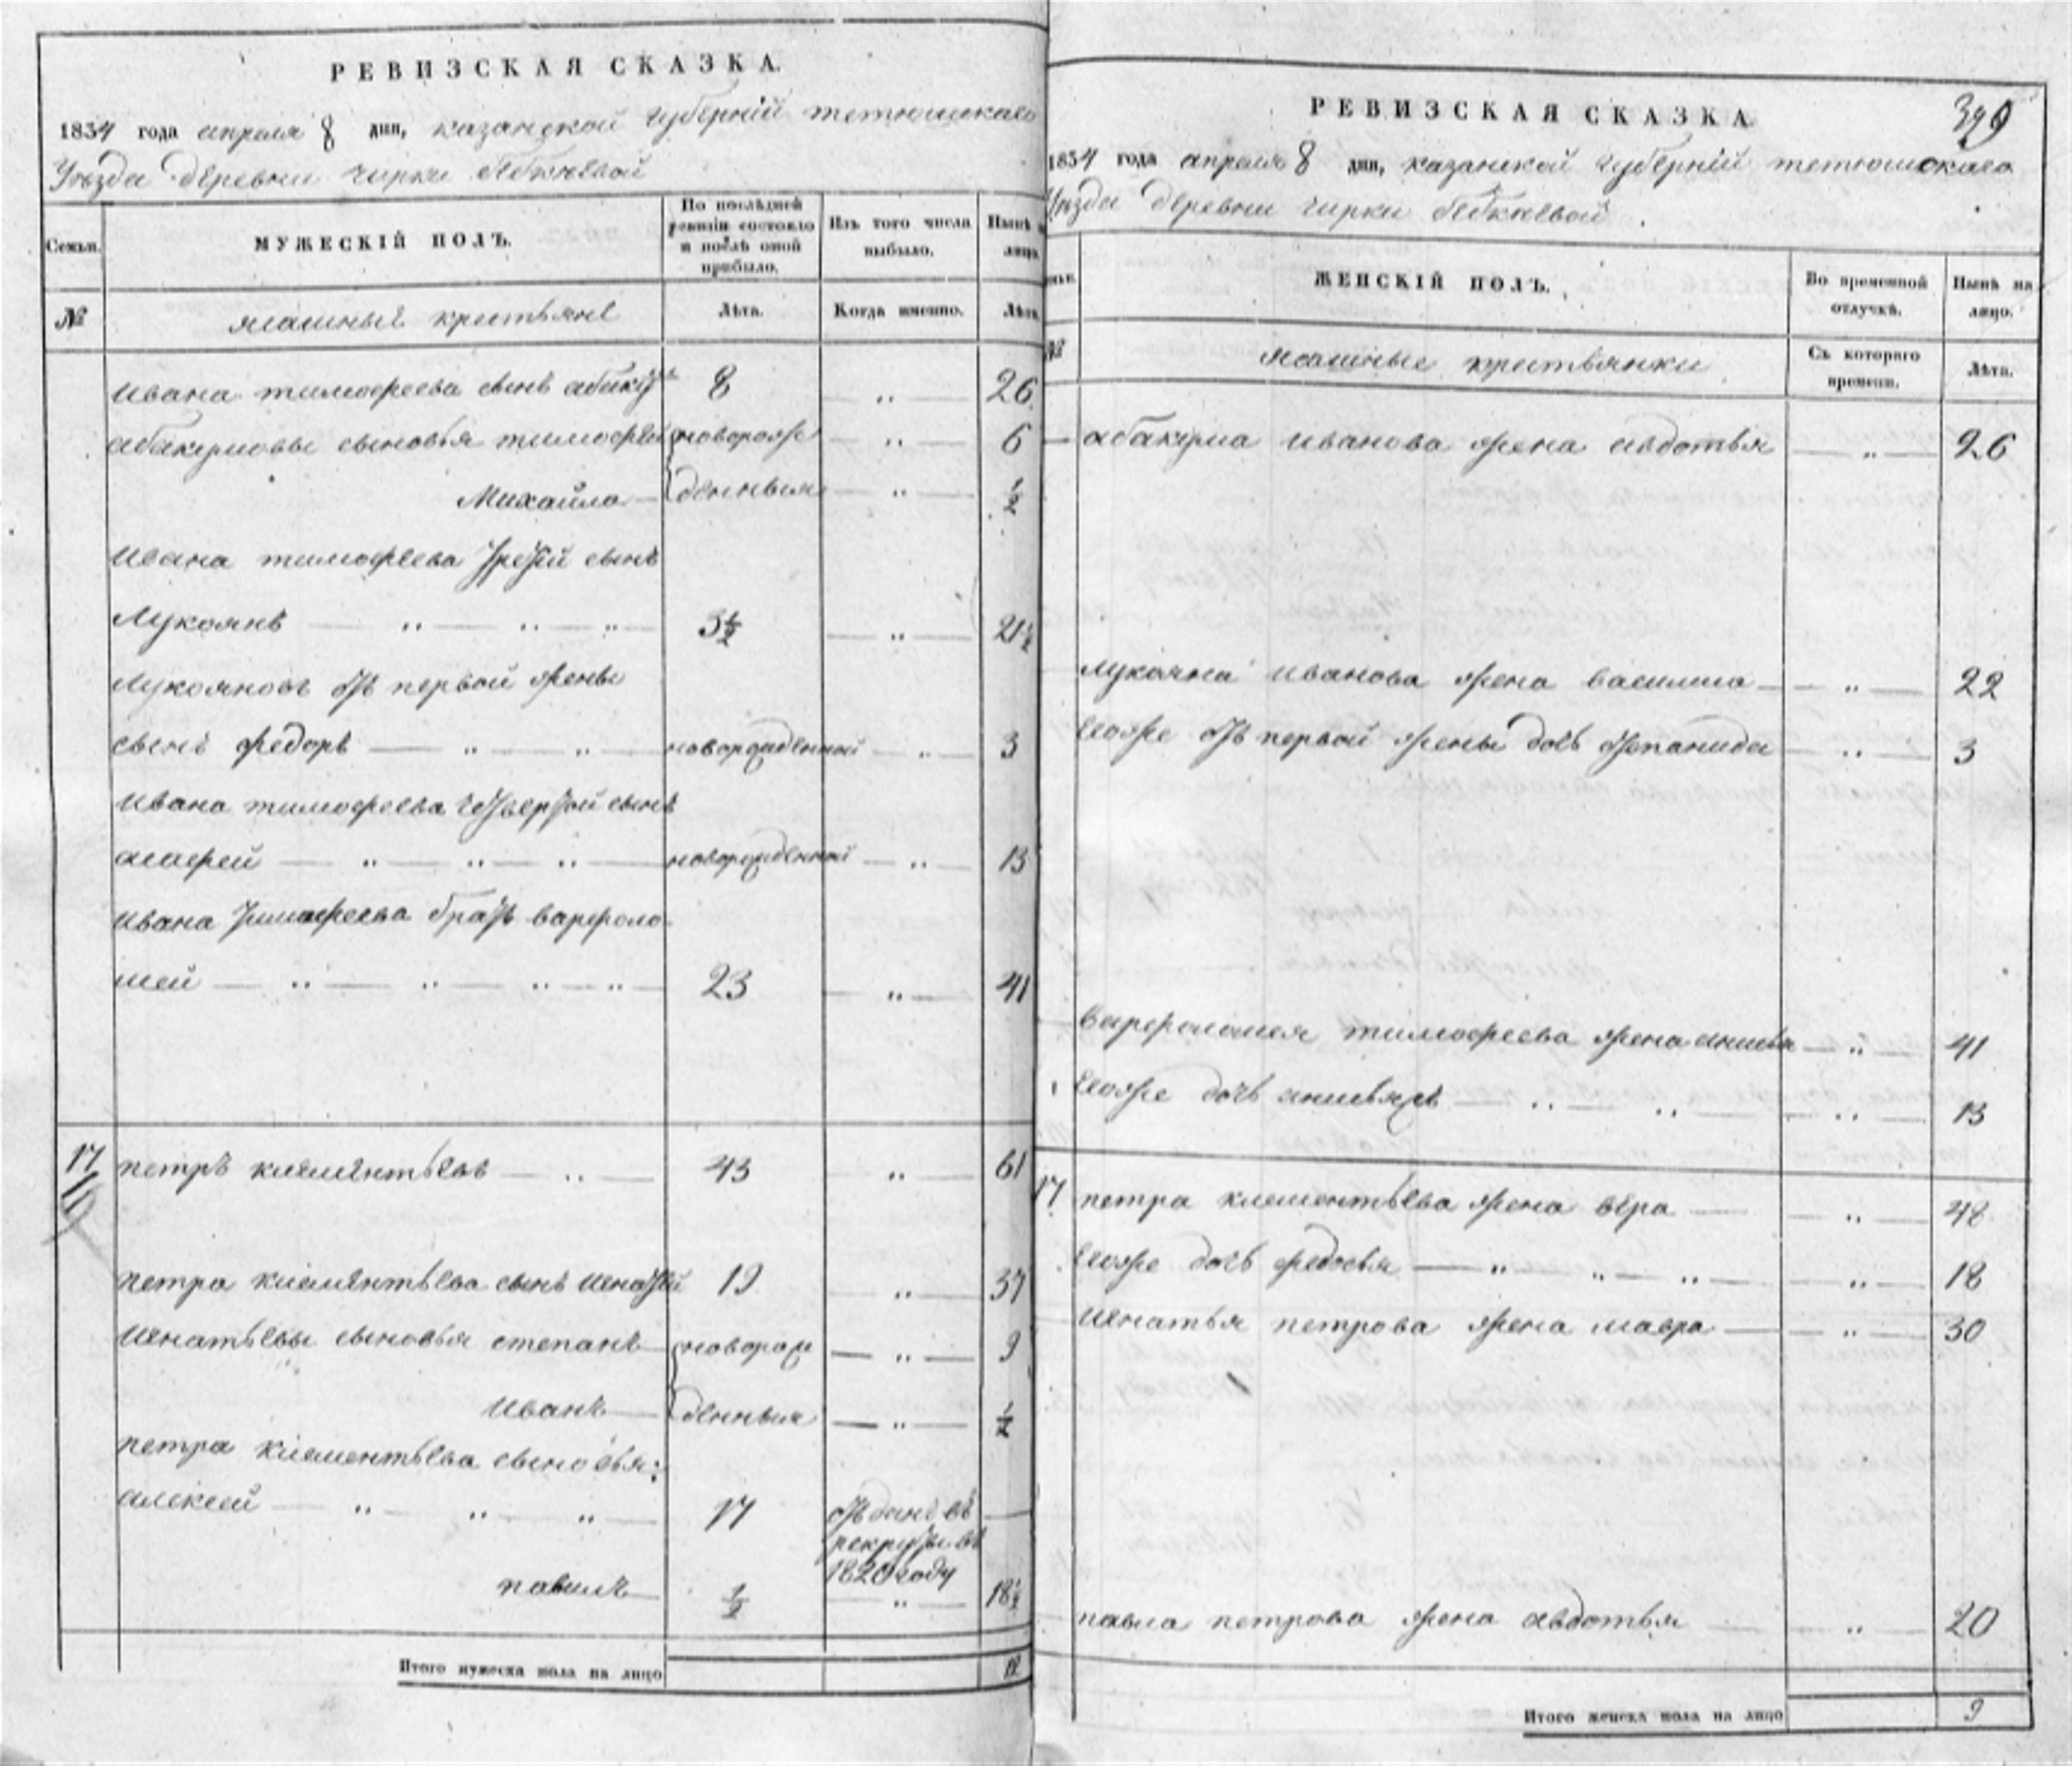 РЕВИЗСКАЯ СКАЗКА.
1834 года апреля 8 дня, казанской губерніи тетюшскаго
Уѣзда деревни чирки бебкѣевой
Семьи.
МУЖЕСКІЙ ПОЛЪ.
По послѣдней ревизіи состояло и послѣ оной прибыло.
Изъ того числа выбыло.
Нынѣ на лицо.
№
ясашныѣ крестьянѣ
Лѣта.
Когда именно.
Лѣта.
ивана тимофеева сынъ абакумъ 8 „ 26
абакумовы сыновья тимофей новорож „ 6
Михайло денныя „ ½
ивана тимофеева третій сынъ
Лукоянъ „ „ „ 3½ „ 21½
лукояновъ отъ первой жены
сынъ федоръ „ „ новорожденной „ 3
ивана тимофеева четвертой сынъ
агафей „ „ „ новорожденной „ 13
ивана тимофеева братъ варфоло
мей „ „ „ „ 23 „ 41
17 петръ клементьевъ „ 43 „ 61
петра клементьева сынъ игнатей 19 „ 37
игнатьевы сыновья степанъ новорож „ 9
иванъ денныя „ ½
петра клементьева сыновья:
алексей „ „ „ 17 отъданъ въ
рекруты въ
1820 году
павилъ ½ „ 18½
Итого мужеска пола на лицо 12
РЕВИЗСКАЯ СКАЗКА.
379
1834 года апреля 8 дня, казанской губерніи тетюшскаго
Уѣзда деревни чирки бебкѣевой.
Семьи.
ЖЕНСКІЙ ПОЛЪ.
Во временной отлучкѣ.
Нынѣ на лицо.
№
ясашные крестьянки
Съ котораго времени.
Лѣта.
абакума иванова жена авдотья „ 26
лукояна иванова жена василиса „ 22
Егоже отъ первой жены дочь степанида „ 3
Варфоломея тимофеева жена анисья „ 41
Егоже дочь „ „ „ 13
17 петра клементьева жена вера „ 48
Егоже дочь федосья „ „ „ „ 18
игнатья петрова жена мавра „ 30
павла петрова жена авдотья „ 20
Итого женска пола на лицо 9